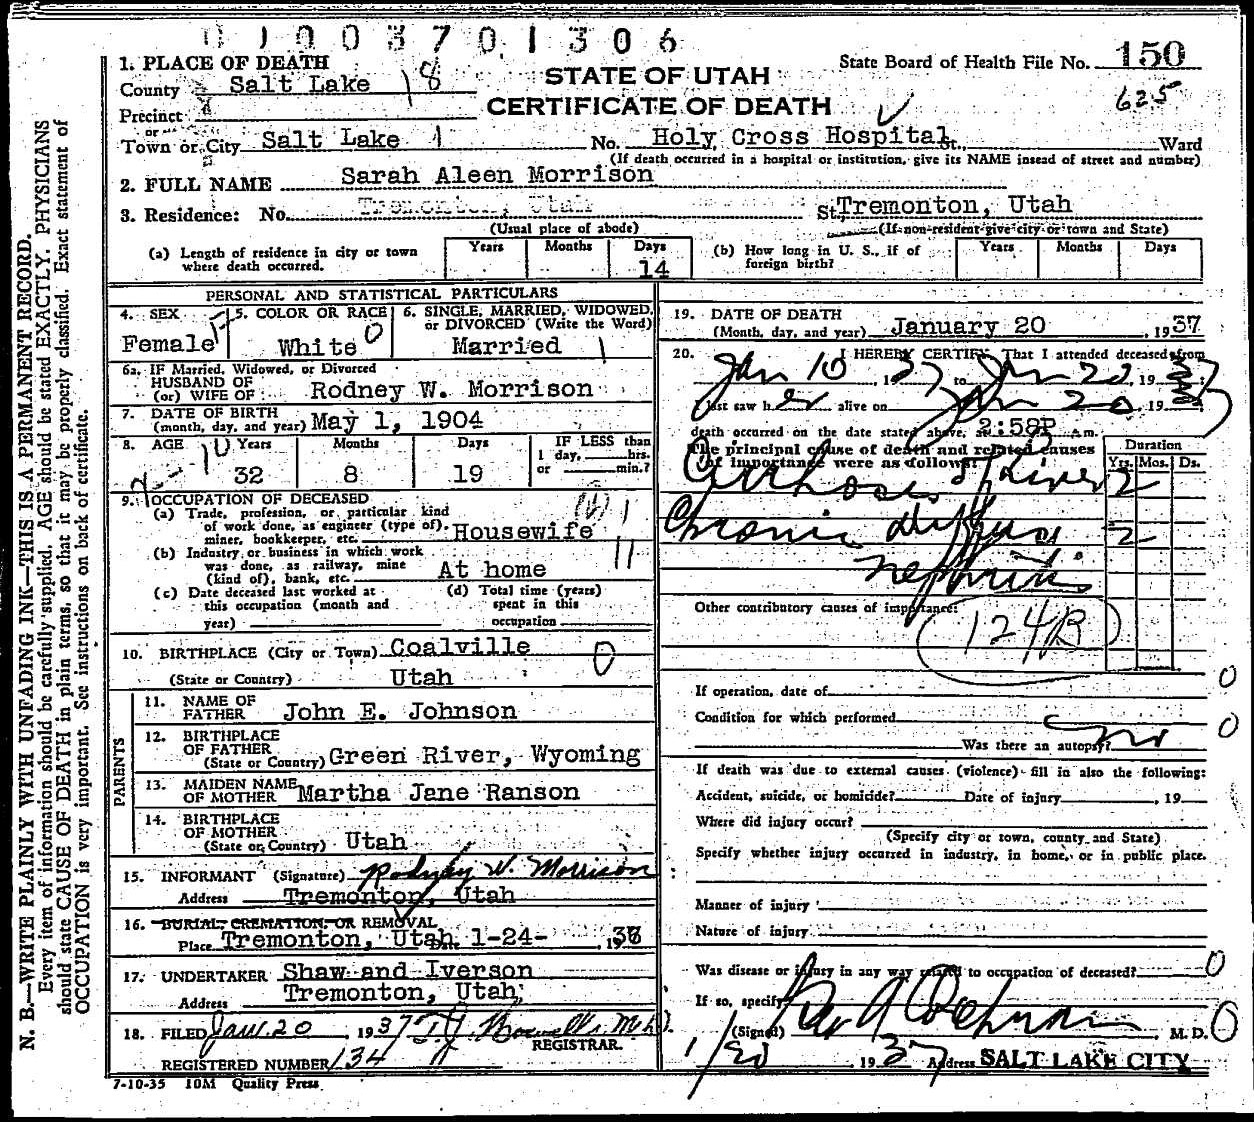 01003701306
1. PLACE OF DEATH
STATE OF UTAH
CERTIFICATE OF DEATH
State Board of Health File No. 150
625
County Salt Lake 18
Precinct
or
Town or City Salt Lake 1 No. Holy Cross Hospital St., Ward
(If death occurred in a hospital or institution, give its NAME insead of street and number)
2. FULL NAME Sarah Aleen Morrison
3. Residence: No. Tremonton, Utah St. Tremonton, Utah
(Usual place of abode) (If non-resident give city or town and State)
(a) Length of residence in city or town where death occurred. Years Months Days 14
(b) How long in U. S., if of foreign birth? Years Months Days
PERSONAL AND STATISTICAL PARTICULARS
4. SEX 5. COLOR OR RACE 6. SINGLE, MARRIED, WIDOWED,
or DIVORCED (Write the Word)
Female White 0 Married 1
6a. IF Married, Widowed, or Divorced
HUSBAND OF
(or) WIFE OF Rodney W. Morrison
7. DATE OF BIRTH
(month, day, and year) May 1, 1904
8. AGE Years Months Days IF LESS than
1 day, hrs.
or min.?
32 8 19
9. OCCUPATION OF DECEASED
(a) Trade, profession, or particular kind
of work done, as engineer (type of).
miner, bookkeeper, etc. Housewife
(b) Industry or business in which work
was done, as railway, mine
(kind of), bank, etc. At home
(c) Date deceased last worked at
this occupation (month and
year)
(d) Total time (years)
spent in this
occupation
10. BIRTHPLACE (City or Town) Coalville 0
(State or Country) Utah
PARENTS
11. NAME OF
FATHER John E. Johnson
12. BIRTHPLACE
OF FATHER
(State or Country) Green River, Wyoming
13. MAIDEN NAME
OF MOTHER Martha Jane Ranson
14. BIRTHPLACE
OF MOTHER
(State or Country) Utah
15. INFORMANT (Signature) Rodney W. Morrison
Address Tremonton, Utah
16. BURIAL, CREMATION, OR REMOVAL
Place Tremonton, Utah 1-24-, 1937
17. UNDERTAKER Shaw and Iverson
Address Tremonton, Utah
18. FILED Jan. 20, 1937 T. J.
REGISTRAR.
REGISTERED NUMBER 134
7-10-35 10M Quality Press
19. DATE OF DEATH
(Month, day, and year) January 20, 1937
20. I HEREBY CERTIFY, That I attended deceased from
Jan 10, 1937 to Jan 20, 19
I last saw her alive on Jan 20, 19
death occurred on the date stated above, at 2:58P m.
The principal cause of death and related causes
of importance were as follows:
Duration
Yrs. Mos. Ds.
Cirrhosis of Liver 2
Chronic diffuse 2
nephritis
Other contributory causes of importance:
124B
If operation, date of 0
Condition for which performed 0
Was there an autopsy? no
If death was due to external causes (violence) fill in also the following:
Accident, suicide, or homicide? Date of injury, 19
Where did injury occur?
(Specify city or town, county and State)
Specify whether injury occurred in industry, in home, or in public place.
Manner of injury
Nature of injury
Was disease or injury in any way related to occupation of deceased? 0
If so, specify
(Signed) M. D. 0
1/20 1937 Address SALT LAKE CITY
N. B.—WRITE PLAINLY WITH UNFADING INK—THIS IS A PERMANENT RECORD.
Every item of information should be carefully supplied. AGE should be stated EXACTLY. PHYSICIANS
should state CAUSE OF DEATH in plain terms, so that it may be properly classified. Exact statement of
OCCUPATION is very important. See instructions on back of certificate.